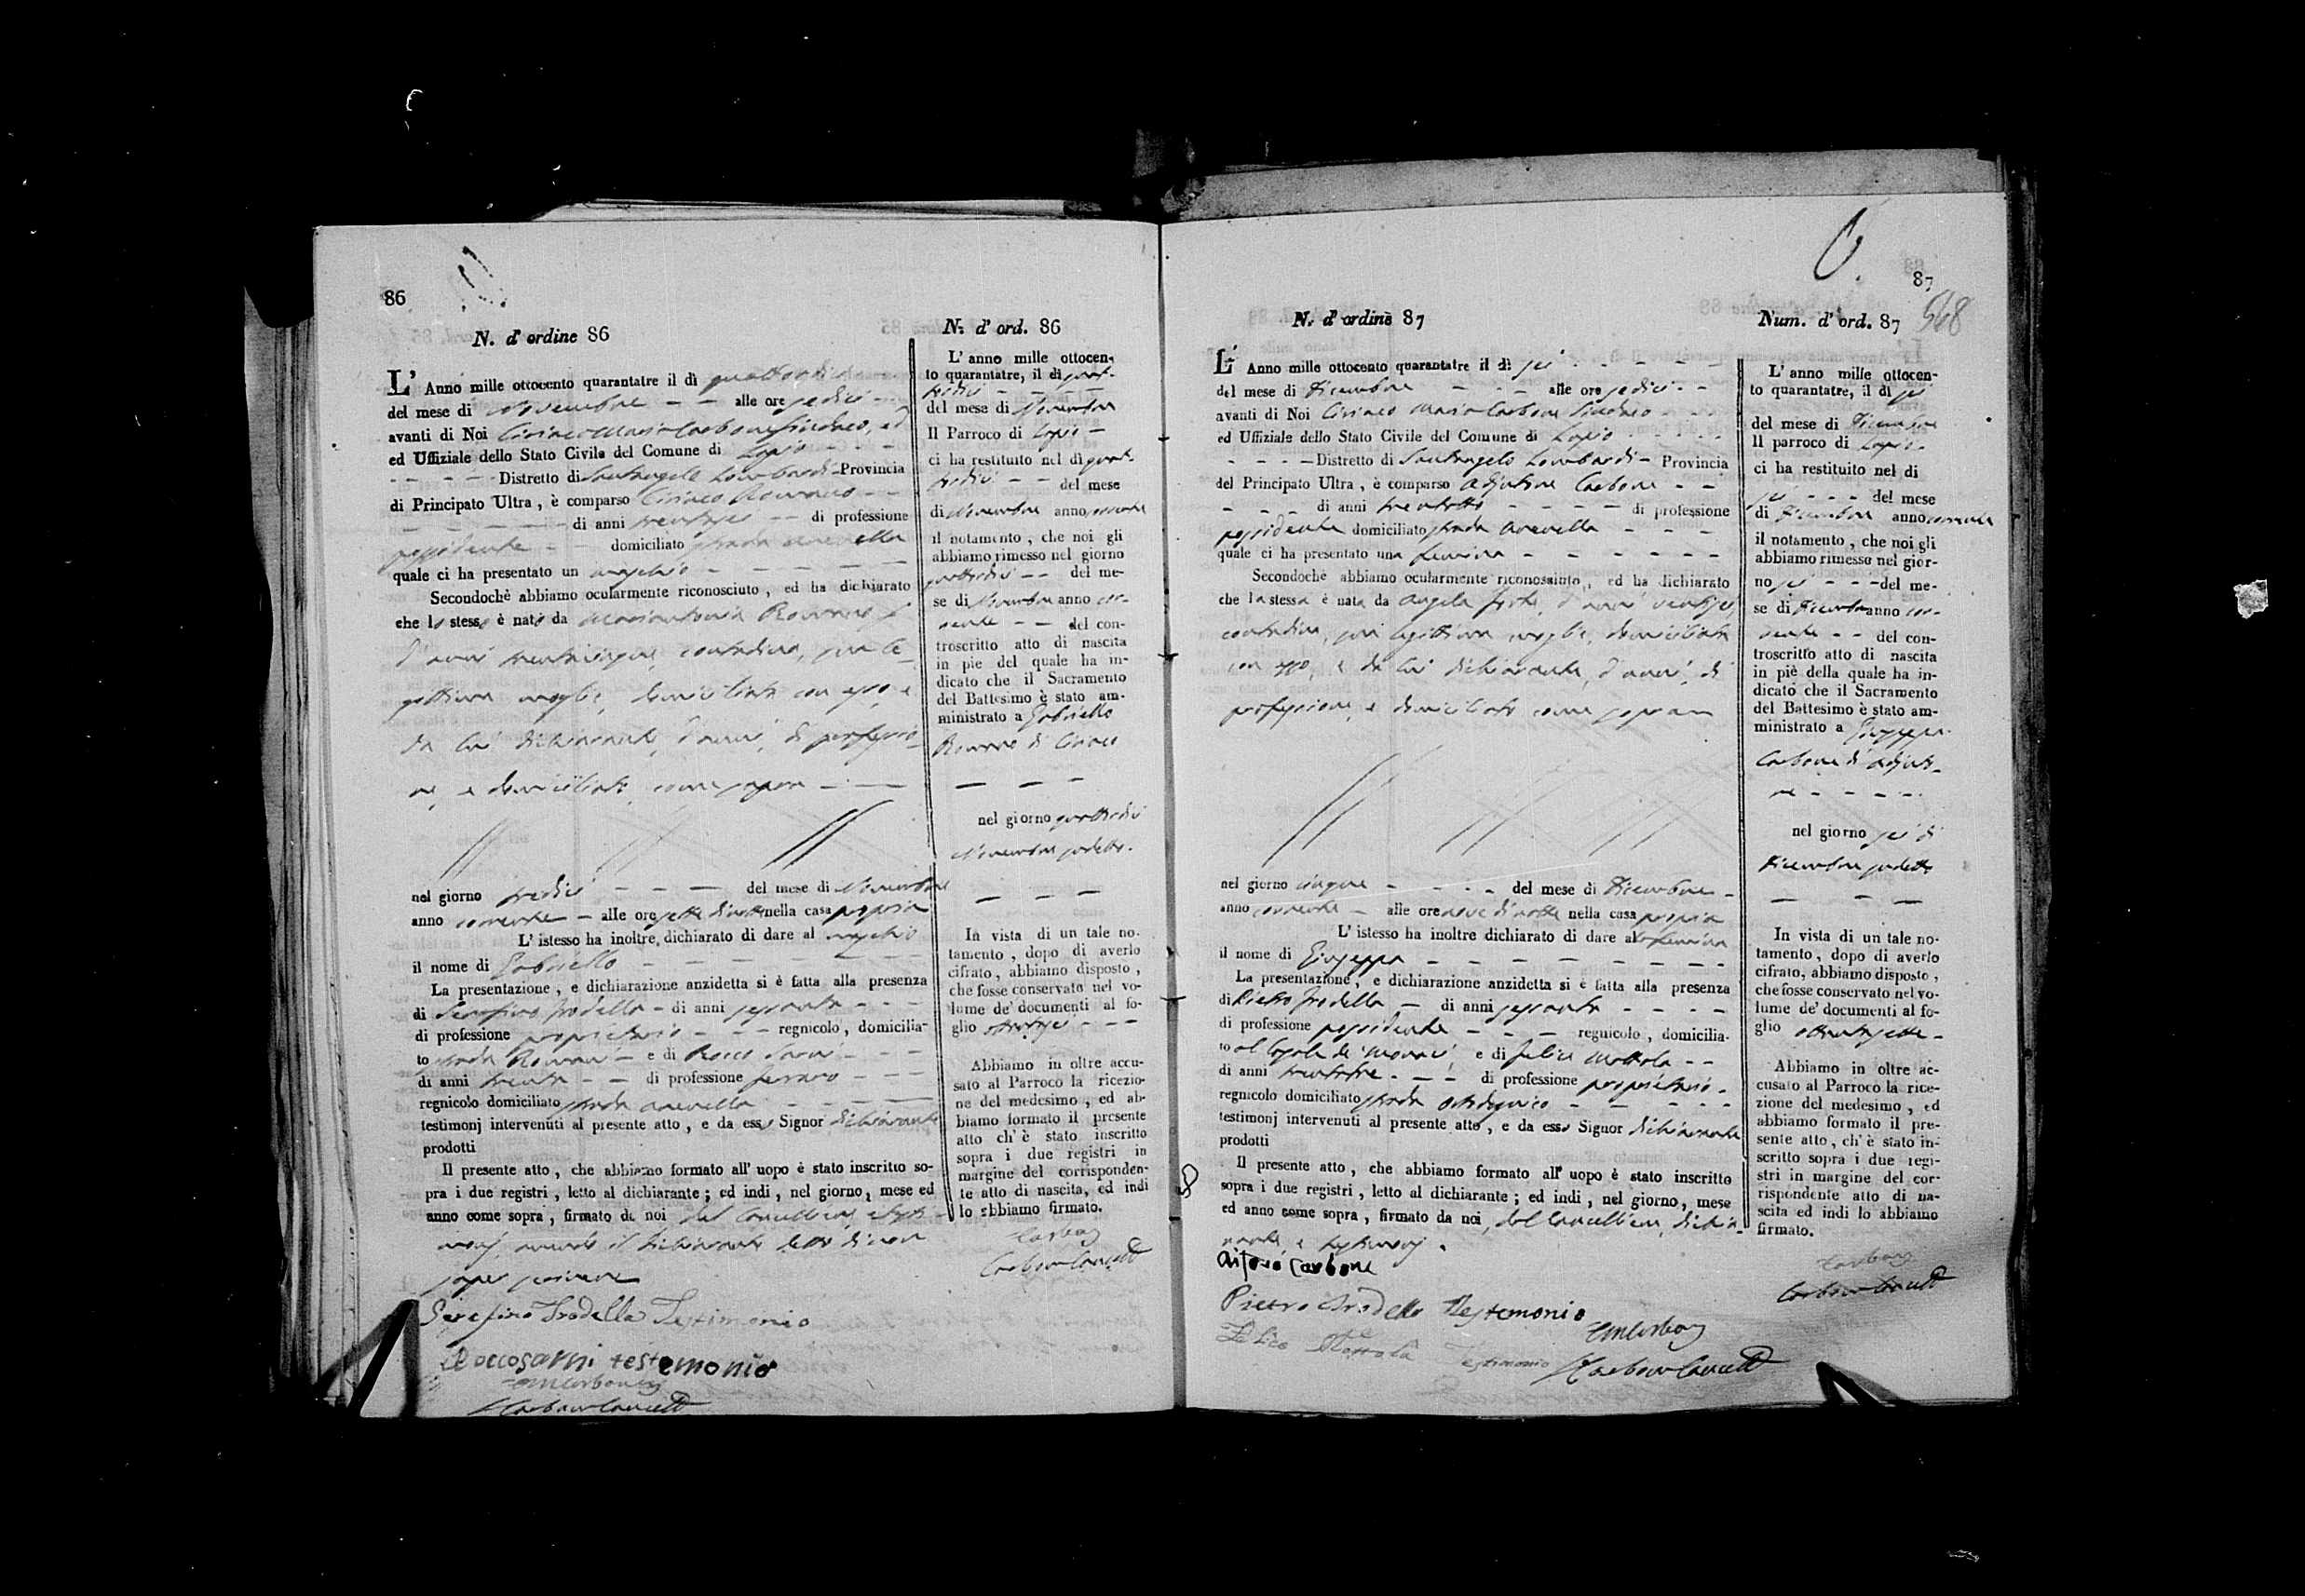 86
N. d' ordine 86
L' Anno mille ottocento quarantatre il dì quattordici
del mese di Novembre - - alle ore sedici -
avanti di Noi Ciriaco Maria Carbone Sindaco, ed
ed Uffiziale dello Stato Civile del Comune di Lapio - - -
- - - - Distretto di Santangelo Lombardi - Provincia
di Principato Ultra, è comparso Ciriaco Romano - -
- - - - di anni trentasei - - di professione
possidente - - domiciliato strada aranella
quale ci ha presentato un maschio - - - - -
Secondochè abbiamo ocularmente riconosciuto, ed ha dichiarato
che lo stesso è nato da Mariantonia Romano
d'anni trentacinque, contadina, sua le-
gittima moglie, domiciliata con esso, e
da lui dichiarante, d'anni, di professio-
ne, e domiciliato come sopra - -
nel giorno tredici - - - del mese di Novembre
anno corrente - alle ore sette di notte nella casa propria
L' istesso ha inoltre, dichiarato di dare al maschio
il nome di Gabriello - - - - -
La presentazione, e dichiarazione anzidetta si è fatta alla presenza
di Serafino Trodella - di anni sessanta - - -
di professione proprietario - - - regnicolo, domicilia-
to strada Romani - e di Rocco Sarni - - -
di anni trenta - - di professione ferraro - - -
regnicolo domiciliato strada aranella - - - -
testimonj intervenuti al presente atto, e da esso Signor dichiarante
prodotti
Il presente atto, che abbiamo formato all' uopo è stato inscritto so-
pra i due registri, letto al dichiarante; ed indi, nel giorno, mese ed
anno come sopra, firmato da noi dal Cancelliere, e testi-
monj, avendo il dichiarante detto di non
saper scrivere
Serafino Trodella Testimonio
Rocco sarni testemonio
Carbone Cancell
N. d' ord. 86
L' anno mille ottocen-
to quarantatre, il dì quat-
tordici - - -
del mese di Novembre
Il Parroco di Lapio -
ci ha restituito nel dì quat-
tordici - - del mese
di Novembre anno corrente
il notamento, che noi gli
abbiamo rimesso nel giorno
quattordici - - del me-
se di Novembre anno cor-
rente - - del con-
troscritto atto di nascita
in piè del quale ha in-
dicato che il Sacramento
del Battesimo è stato am-
ministrato a Gabriello
Romano di Ciriaco
- - -
nel giorno quattordici
Novembre sudetto.
- - -
In vista di un tale no-
tamento, dopo di averlo
cifrato, abbiamo disposto,
che fosse conservato nel vo-
lume de' documenti al fo-
glio ottantasei - - -
Abbiamo in oltre accu-
sato al Parroco la ricezio-
ne del medesimo, ed ab-
biamo formato il presente
atto ch' è stato inscritto
sopra i due registri in
margine del corrisponden-
te atto di nascita, ed indi
lo abbiamo firmato.
Carbone
Carbone Cancell
87
568
N. d' ordine 87
L' Anno mille ottocento quarantatre il dì sei - - - - -
del mese di Dicembre - - - alle ore sedici - -
avanti di Noi Ciriaco Maria Carbone Sindaco - - -
ed Uffiziale dello Stato Civile del Comune di Lapio - - - - -
- - - - Distretto di Santangelo Lombardi - Provincia
del Principato Ultra, è comparso Adjutore Carbone - -
- - - di anni trentotto - - - - di professione
possidente domiciliato strada aranella - - -
quale ci ha presentato una femina - - - - - -
Secondochè abbiamo ocularmente riconosciuto, ed ha dichiarato
che la stessa è nata da Angela Forte, d'anni ventisei
contadina, sua legittima moglie, domiciliata
con esso, e da lui dichiarante, d'anni, di
professione, e domiciliato come sopra
nel giorno cinque - - - - del mese di Dicembre -
anno corrente - alle ore nove di notte nella casa propria
L' istesso ha inoltre dichiarato di dare alla femina
il nome di Giuseppa - - - - - - - -
La presentazione, e dichiarazione anzidetta si è fatta alla presenza
di Pietro Trodella - di anni sessanta - - - -
di professione possidente - - - regnicolo, domicilia-
to al Casale de' Monaci e di Felice Mottola - -
di anni trentatre - - - di professione proprietario -
regnicolo domiciliato strada - - - - -
testimonj intervenuti al presente atto, e da esso Signor dichiarante
prodotti
Il presente atto, che abbiamo formato all' uopo è stato inscritto
sopra i due registri, letto al dichiarante; ed indi, nel giorno, mese
ed anno come sopra, firmato da noi, dal Cancelliere, dichia-
rante, e testimonj.
Carbone
Pietro Trodella Testemonio
Felice Mottola Testimonio
Carbone Cancell
Num. d' ord. 87
L' anno mille ottocen-
to quarantatre, il dì sei
del mese di Dicembre
Il parroco di Lapio -
ci ha restituito nel di
sei - - - del mese
di Dicembre anno corrente
il notamento, che noi gli
abbiamo rimesso nel gior-
no sei - - - del me-
se di Dicembre anno cor-
rente - - del con-
troscritto atto di nascita
in piè della quale ha in-
dicato che il Sacramento
del Battesimo è stato am-
ministrato a Giuseppa
Carbone di Adjuto-
re - - - -
nel giorno sei di
Dicembre sudetto
- - -
In vista di un tale no-
tamento, dopo di averlo
cifrato, abbiamo disposto,
che fosse conservato nel vo-
lume de' documenti al fo-
glio ottantasette -
Abbiamo in oltre ac-
cusato al Parroco la rice-
zione del medesimo, ed
abbiamo formato il pre-
sente atto, ch' è stato in-
scritto sopra i due regi-
stri in margine del cor-
rispondente atto di na-
scita ed indi lo abbiamo
firmato.
Carbone
Carbone Cancell